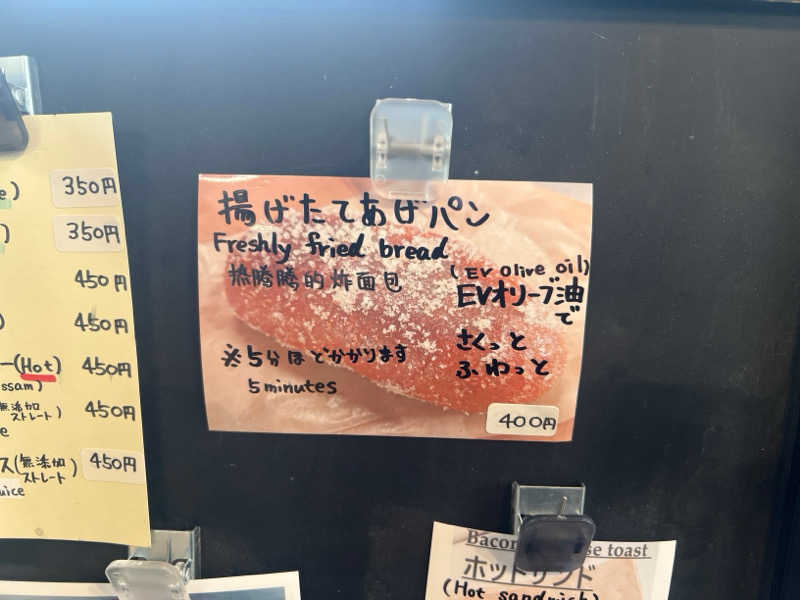 350円
350円
450円
450円
(Hot) 450円
ssam)
無添加
ストレート) 450円
ス(無添加
ストレート) 450円
uice
揚げたてあげパン
Freshly fried bread
热腾腾的炸面包
(EV olive oil)
EVオリーブ油
で
さくっと
ふわっと
※5分ほどかかります
5 minutes
400円
toast
ホットサンド
(Hot sandwich)